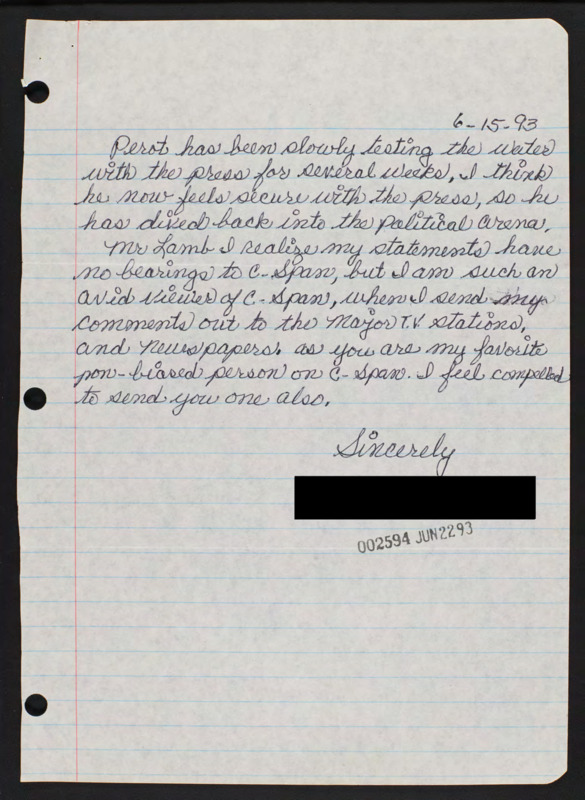 6-15-93
Perot has been slowly testing the water
with the press for several weeks, I think
he now feels secure with the press, so he
has dived back into the political arena.
Mr Lamb I realize my statements have
no bearings to C-Span, but I am such an
avid viewer of C-Span, when I send my
comments out to the Major T.V. stations,
and newspapers. as you are my favorite
non-biased person on C-Span. I feel compelled
to send you one also.
Sincerely
002594 JUN2293